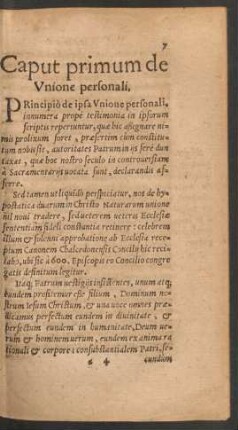 7
Caput primum de
Vnione personali.
PRincipiò de ipsa Vnione personali,
innumera propè testimonia in ipsorum
scriptis reperiuntur, quæ hic aßignare ni-
mis prolixum foret, præsertim cùm constitu-
tum nobis sit, autoritates Patrum in ijs serè dun
taxat, quæ hoc nostro seculo in controuersiam
à Sacramentarijs uocata sunt, declarandis as-
serre.
Sed tamen ut liquidò perspiciatur, nos de hy-
postatica duarum in Christo Naturarum unione
nil noui tradere, sed ueterem ueteris Ecclesiæ
sententiam fideli constantia retinere: celebrem
illum & solenni approbatione ab Ecclesia rece-
ptum Canonem Chalcedonensis Concilij hic reci-
tabo, ubi sic à 600. Episcopis eo Concilio congre
gatis definitum legitur.
Itaq; Patrum uestigijs insistentes, unum atq;
eundem profitemur esse filium, Dominum no-
strum Iesum Christum, & una uoce omnes præ-
dicamus perfectum eundem in diuinitate, &
perfectum eundem in humanitate, Deum ue-
rum & hominem uerum, eundem ex anima ra
tionali & corpore: consubstantialem Patri, se-
cundum